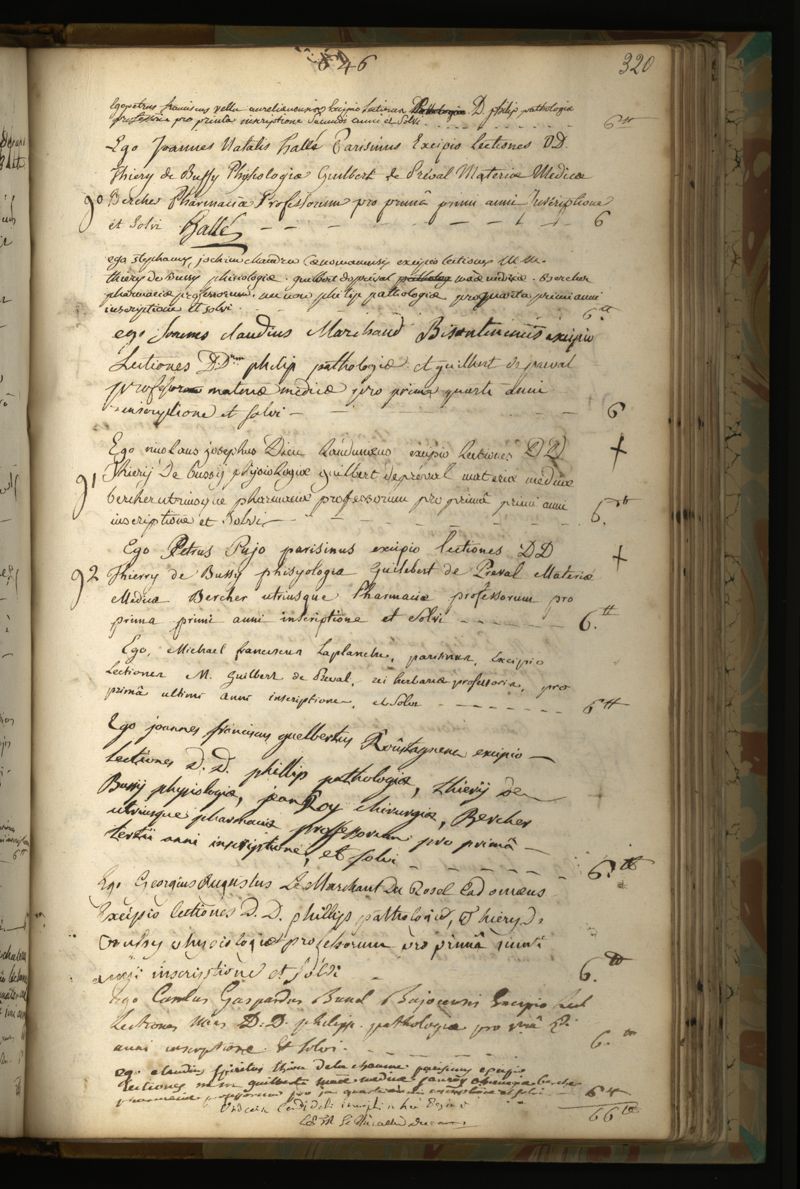 646
320
Ego petrus franciscus aurelianensis Excipio lectiones D. philip pathologiæ
professoris pro prima inscriptione secundi anni et Solvi 6 tt
Ego Joannes Natalis hallé Parisinus Excipio Lectiones DD.
Thiery de Bussy Physologiæ Guilbert de Préval Materiæ Medicæ
90 Bercher Pharmaciæ Professorum pro primâ primi anni Inscriptione
et Solvi Hallé 6
ego Stephanus, joachim chaudru Cœnomanensis excipio lectiones M.M.
thiery de Bussy phisiologiæ. guilbert depreval mae medicæ. Bercher
pharmaciæ professorum, philip pathologiæ pro primi anni
inscriptione et solvi. 6 tt
ego claudius Marchand Bisuntinensis excipio
Lectiones DD philip pathologiæ et guilbert de preval
professorum materiæ medicæ pro prima quarti anni
inscriptione et solvi 6
Ego nicolaus josephus Dieu Laudunæus excipio lectiones DD
91 Thierij De bussij physiologiæ guilbert depréval materiæ medicæ
bercher utriusque pharmaciæ professorum pro primâ primi anni
inscriptione et Solvi 6. tt
Ego Petrus Pujo parisinus excipio lectiones DD
92 Thierry de Bussy phisyologiæ Guilebert de Preval Materiæ
Medicæ Bercher utriusque Pharmaciæ professorum pro
prima primi anni inscriptione et solvi 6. tt
Ego, Michael franciscus Laplanche, parisinus, Excipio
Lectiones M. Guilbert de Préval, rei herbariæ professoris, pro
primâ ultimi anni inscriptione, et Solvi 6 tt
Ego joannes franciscus guelbertus excipio
Lectiones D. D. phillip pathologiæ, thierij de
Bussij physiologiæ, jean Roy chirurgiæ, Bercher
utriusque pharmaciæ professorum pro primâ
tertii anni inscriptione, et solvi 6. tt
Ego Georgius Augustus Le Marchant Du Rosel Cadomæus
Excipio lectiones D. D. phillip pathologiæ, Thiery De
Bussy physiologiæ professorum pro primâ
anni inscriptione et Solvi 6. tt
Ego Carolus Gaspardus Bunel Bajocensis Excipio
Lectiones D. D. philipp. pathologiæ pro
anni inscriptione et solvi. 6. tt
ego claudius parisinus excipio
Lectiones m m guilbert mae medicæ bercher
pharmaciæ professorum pro inscriptione et solvi 6 tt
66 tt